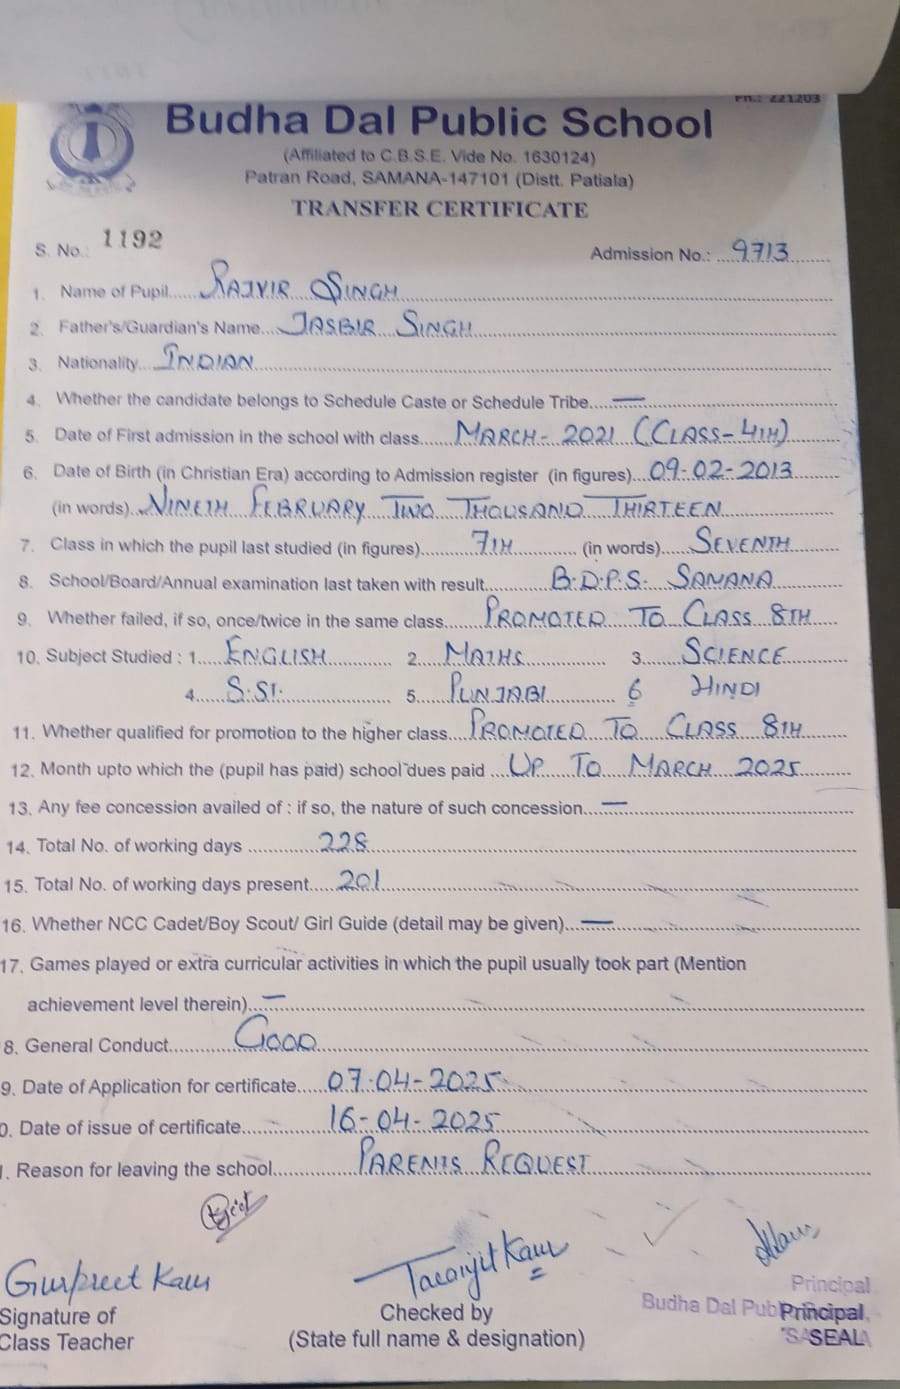 Ph.: 221203
Budha Dal Public School
(Affiliated to C.B.S.E. Vide No. 1630124)
Patran Road, SAMANA-147101 (Distt. Patiala)
TRANSFER CERTIFICATE
S. No.: 1192
Admission No.: 9713
1. Name of Pupil RAJVIR SINGH
2. Father's/Guardian's Name JASBIR SINGH
3. Nationality INDIAN
4. Whether the candidate belongs to Schedule Caste or Schedule Tribe —
5. Date of First admission in the school with class MARCH-2021 (CLASS-4TH)
6. Date of Birth (in Christian Era) according to Admission register (in figures) 09-02-2013
(in words) NINETH FEBRUARY TWO THOUSAND THIRTEEN
7. Class in which the pupil last studied (in figures) 7TH (in words) SEVENTH
8. School/Board/Annual examination last taken with result B.D.P.S. SAMANA
9. Whether failed, if so, once/twice in the same class PROMOTED TO CLASS 8TH
10. Subject Studied : 1. ENGLISH 2. MATHS 3. SCIENCE
4. S.ST. 5. PUNJABI 6 HINDI
11. Whether qualified for promotion to the higher class PROMOTED TO CLASS 8TH
12. Month upto which the (pupil has paid) school dues paid UP TO MARCH 2025
13. Any fee concession availed of : if so, the nature of such concession —
14. Total No. of working days 228
15. Total No. of working days present 201
16. Whether NCC Cadet/Boy Scout/ Girl Guide (detail may be given) —
17. Games played or extra curricular activities in which the pupil usually took part (Mention
achievement level therein) —
8. General Conduct GOOD
9. Date of Application for certificate 07-04-2025
0. Date of issue of certificate 16-04-2025
. Reason for leaving the school PARENTS REQUEST
Gurpreet Kaur
Signature of
Class Teacher
Taranjit Kaur
Checked by
(State full name & designation)
Principal
Budha Dal Pub
Principal
SEAL